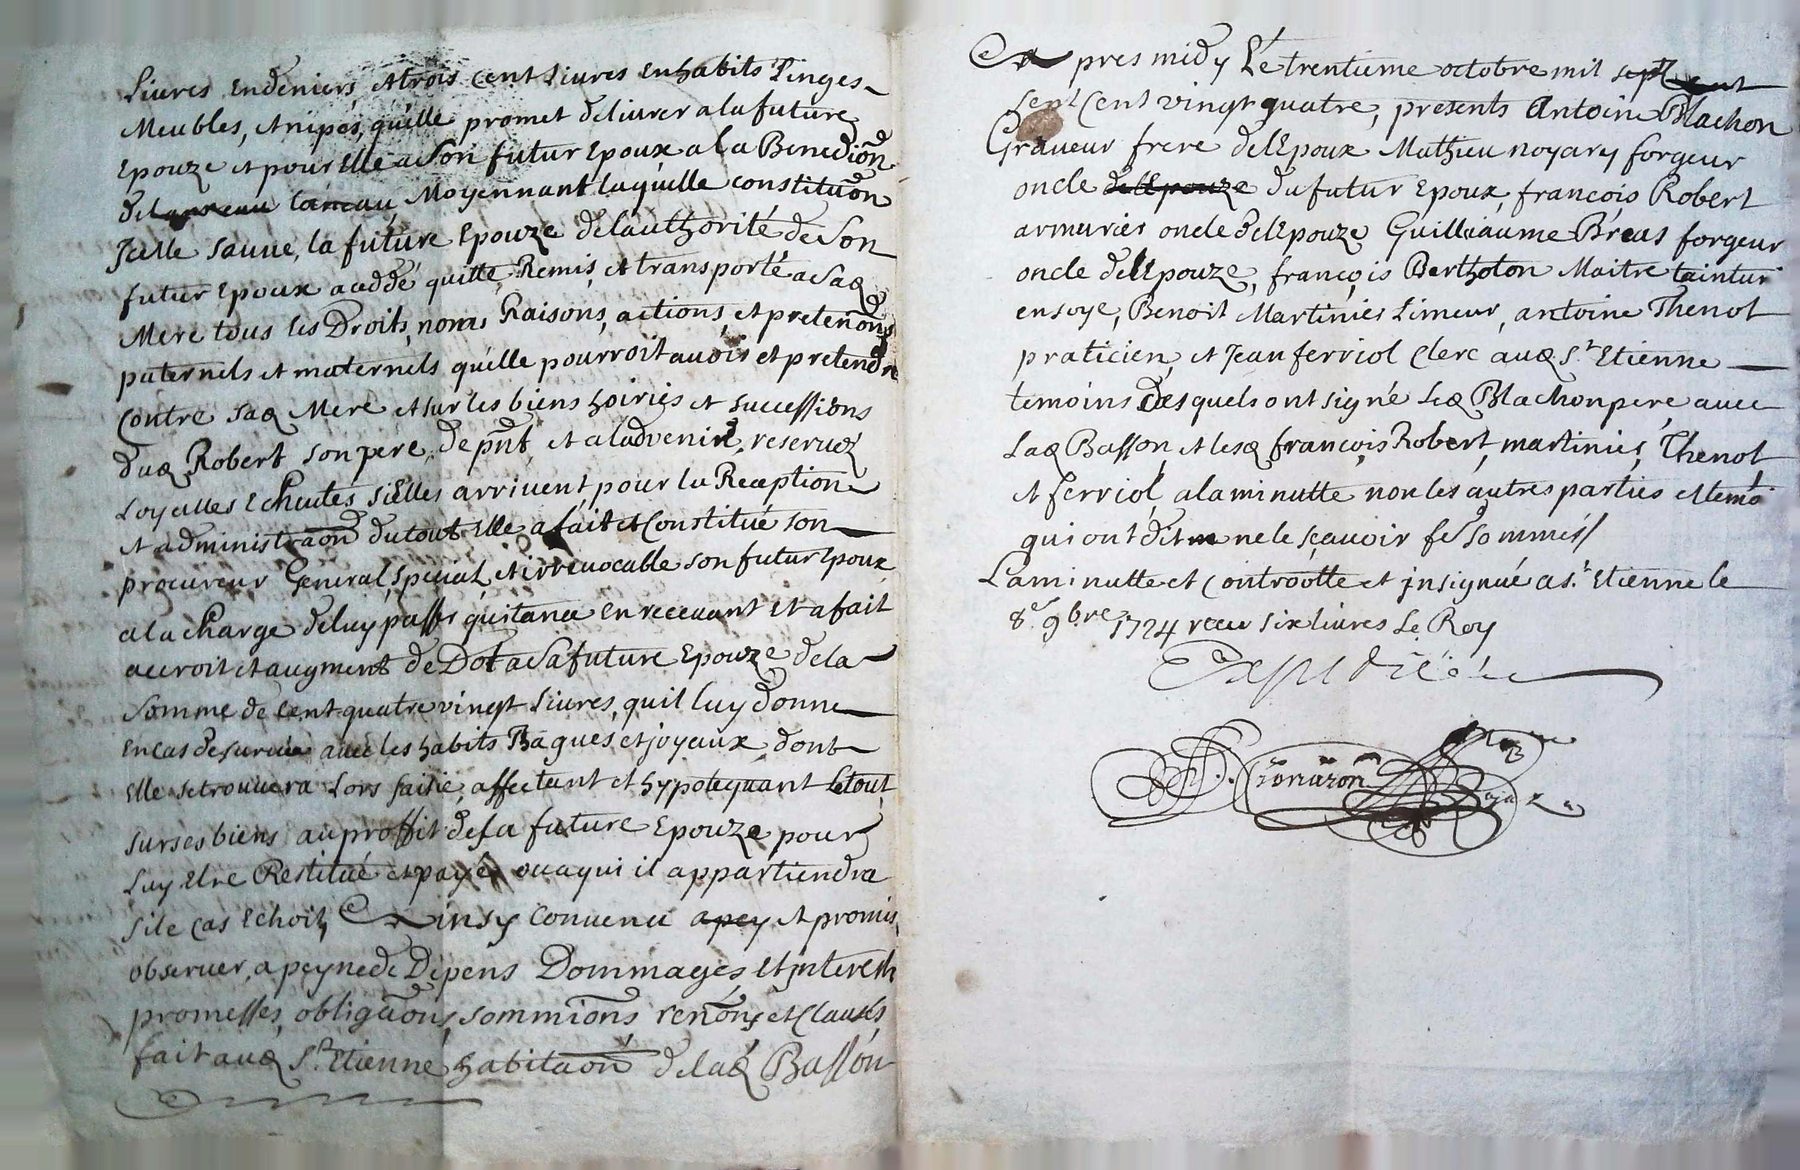 Livres en deniers, et trois cent livres en habits Linges
Meubles, et nipes, qu'elle promet delivrer a la future
Epouze et pour Elle a son futur Epoux a la Benedion
de Moyennant laquelle constituon
Jcelle saune, la future Epouze de l'authorité de son
futur Epoux a cddé quitté, Remis, et transporté a sad
Mere tous les Droits, noms, Raisons, actions, et pretenons
paternels et maternels qu'elle pourroit avoir et pretendre
Contre sad Mere et sur les biens hoiries et successions
dud Robert son pere, de pnt, et a l'advenir, reservez
Loyalles Echutes sielles arrivent, pour la Reception
et administraon du tout Elle a fait et Constitué son
procureur General, special, et irrevocable son futur Epoux
a la Charge de luy passer quitance en recevant et a fait
accroit et augment de Dot a sa future Epouze de la
somme de cent quatre vingt Livres, quil luy donne
en cas de survie avec les habits Bagues et joyaux, dont
Elle se trouvera Lors saisie, affectant et hypotequant le tout
sur ses biens au proffit de sa future Epouze pour
Luy Etre Restitué et payé, ou a qui il appartiendra
si le cas Echoit, Ainsy Convenu apey et promis
observer, a peyne de Dépens Dommages, et jnterests
promesses, obligaons, sommions renons et Clauses
fait aud St Etienne habitaon de lad Basson
Apres midy Le trentieme octobre mil sept cent
sept Cent vingt quatre, presents Antoine Blachon
Graveur frere de l'Epoux Mathieu noyary forgeur
oncle de l'Epouze du futur Epoux, françois Robert
armurier oncle de l'Epouze Guilliaume Breas forgeur
oncle de l'Epouze, françois Bertholon Maitre taintur
en soye, Benoit Martinier Limeur, antoine Thenot
praticien, et Jean ferriol Clerc aud St Etienne
temoins Desquels ont signé Led Blachon pere avec
Lad Basson, et lesd françois Robert, martinier, Thenot
et ferriol, a la minutte non les autres parties et temo
qui ont dit ne le sçavoir fe sommés
La minutte et Controolle et jnsignué a St Etienne le
8e 9bre 1724 receu six livres Le Roy
Expedié